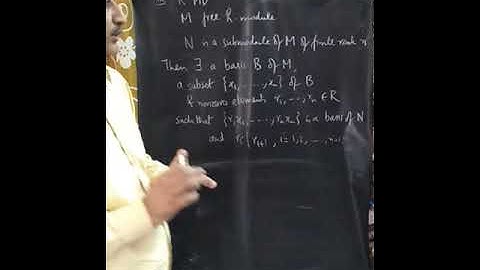 R PID
M free R-module
N is a submodule of M of finite rank n
Then ∃ a basis B of M,
a subset {x₁, ---, xₙ} of B
& nonzero elements r₁, ---, rₙ ∈ R
such that {r₁x₁, ----, rₙxₙ} is a basis of N
and rᵢ | rᵢ₊₁, i=1,2, ---, n-1